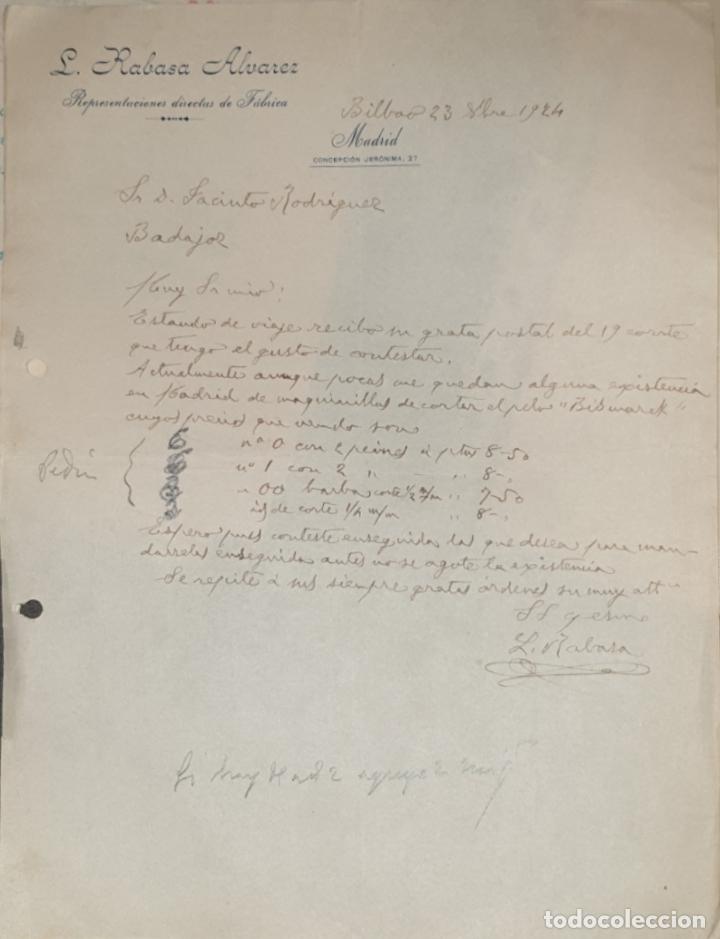 L. Rabasa Alvarez
Representaciones directas de Fábrica
Bilbao 23 8bre 1924
Madrid
CONCEPCIÓN JERÓNIMA, 27
Sr D. Jacinto Rodríguez
Badajoz
Muy Sr mio:
Estando de viaje recibo su grata postal del 19 corrte
que tengo el gusto de contestar.
Actualmente aunque pocas me quedan alguna existencia
en Madrid de maquinillas de cortar el pelo "Bismarck"
cuyos precios que vendo son
nº 0 con 2 peines á ptas 8-50
nº 1 con 2 " " 8-,
" 00 barba corte 1/2 m/m " 7-50
id de corte 1/4 m/m " 8-,
Pedir
Espero pues conteste enseguida las que desea para man-
darselas enseguida antes no se agote la existencia
Se repite á sus siempre gratas órdenes su muy att
SS q e s m
L. Rabasa
Si hay
todocoleccion
todocoleccion.net